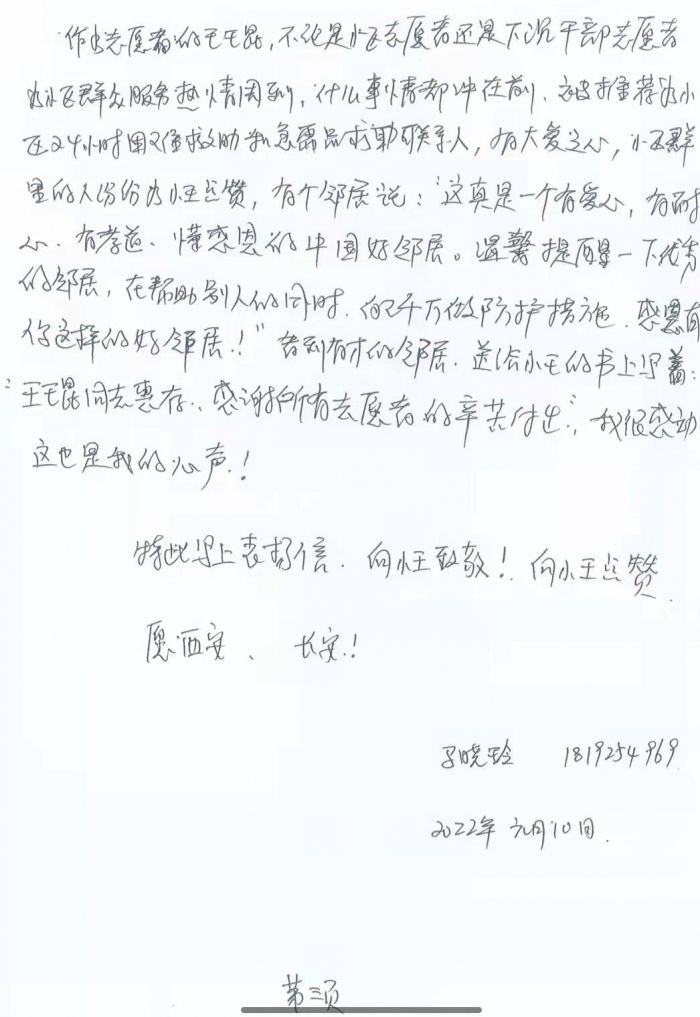 作为志愿者的王王昆,不论是小区志愿者还是下沉干部志愿者
为小区群众服务热情周到,什么事情都冲在前,被推荐为小
区24小时困难救助和急需品求助联系人,有大爱之心,小区群
里的人份份为小王点赞,有个邻居说:“这真是一个有爱心,有耐
心、有孝道、懂感恩的中国好邻居。温馨提醒一下优秀
的邻居,在帮助别人的同时,自己千万做防护措施,感恩有
你这样的好邻居!”看到有的邻居,送给小王的书上写着:
“王王昆同志惠存,感谢所有志愿者的辛苦付出”,我很感动
这也是我的心声!
特此写上表扬信.向小王致敬!向小王点赞
愿西安、长安!
晓玲 1819254969
2022年元月10日.
第三页